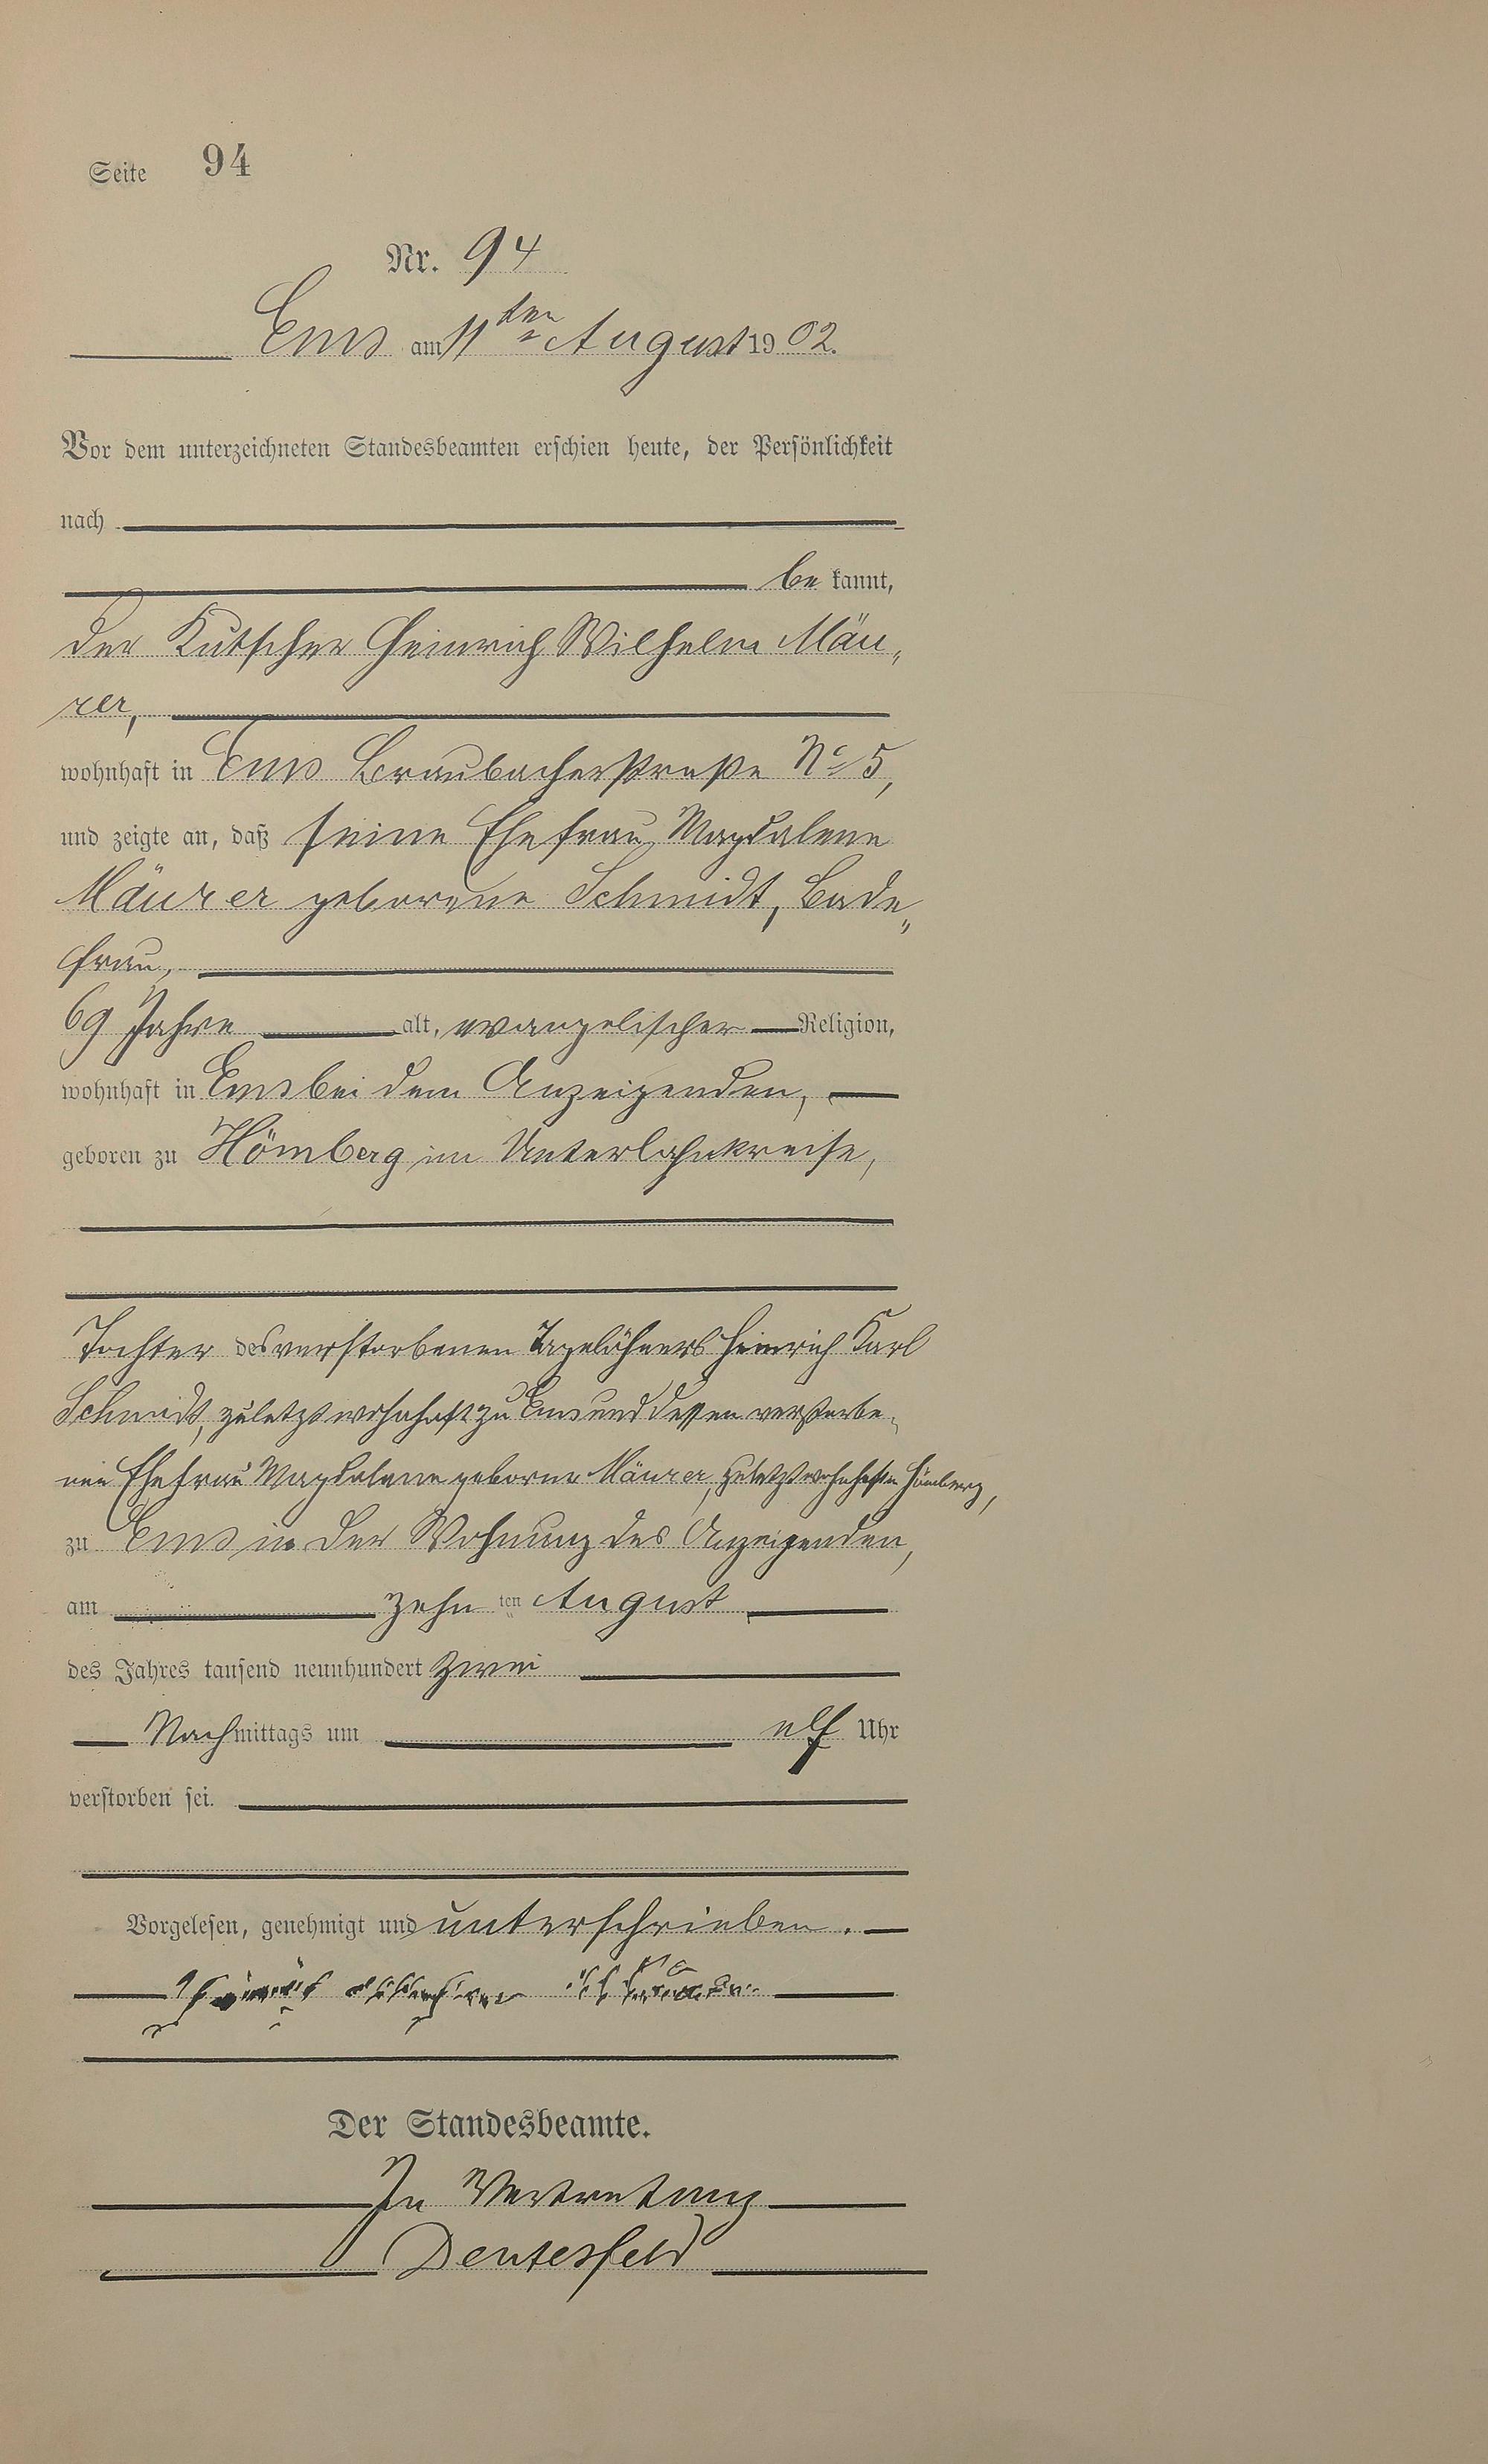 Seite 94
Nr. 94
Ems am 11ten August 1902.
Vor dem unterzeichneten Standesbeamten erschien heute, der Persönlichkeit
nach
be kannt,
der Kutscher Heinrich Wilhelm Mäu„
rer,
wohnhaft in Ems Braubacherstraße No 5,
und zeigte an, daß seine Ehefrau Magdalene
Mäurer geborene Schmidt, Bade„
frau,
69 Jahre alt, evangelischer Religion,
wohnhaft in Ems bei dem Anzeigenden,
geboren zu Hömberg im Unterlahnkreise,
Tochter des verstorbenen Tagelöhners Heinrich Karl
Schmidt, zuletzt wohnhaft zu Ems und dessen verstorbe„
nen Ehefrau Magdalene geborne Mäurer, zuletzt wohnhaft in Hömberg,
zu Ems in der Wohnung des Anzeigenden,
am zehn ten August
des Jahres tausend neunhundert zwei
Nachmittags um elf Uhr
verstorben sei.
Vorgelesen, genehmigt und unterschrieben.
Der Standesbeamte.
In Vertretung
Deutesfeld